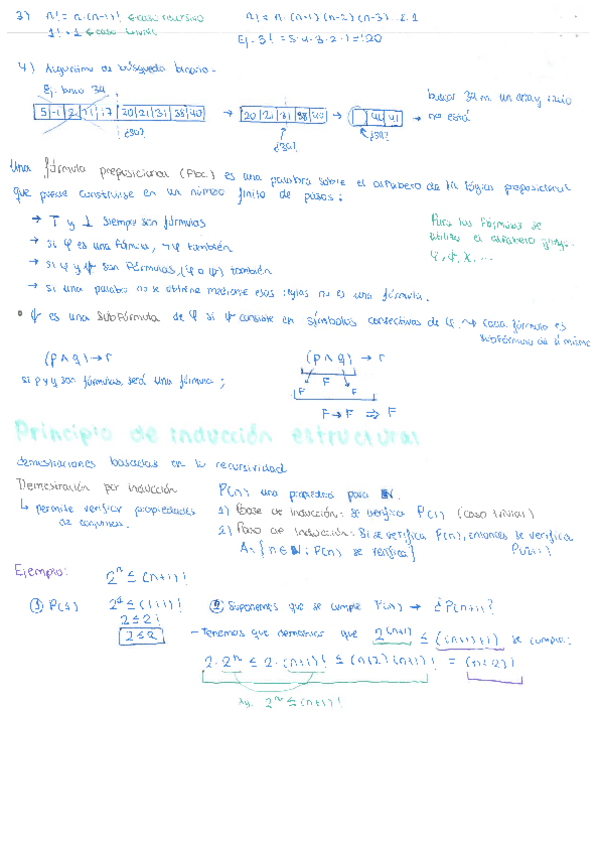 3) n! = n·(n-1)! ← caso recursivo    n! = n·(n-1)(n-2)(n-3)...2.1
1! = 1 ← caso trivial    Ej. 5! = 5·4·3·2·1 = 120
4) Algoritmo de búsqueda binario.
Ej. busco 34    buscar 34 en un array vacío
5 |-1| 2 |11|17|20|21|31|38|40 → 20|21|31|38|40 → → no está
¿34? ¿34? ¿34?
Una fórmula proposicional (Prop) es una palabra sobre el alfabeto de la lógica proposicional
que puede construirse en un número finito de pasos:
→ ⊤ y ⊥ siempre son fórmulas    Para las fórmulas se
→ si φ es una fórmula, ¬φ también    utiliza el alfabeto griego.
→ si φ y ψ son fórmulas, (φ o ψ) también    φ, ψ, χ, ...
→ si una palabra no se obtiene mediante esas reglas no es una fórmula.
• ψ es una subfórmula de φ si ψ consiste en símbolos consecutivos de φ. → cada fórmula es
subfórmula de sí misma
(p ∧ q) → r    (p ∧ q) → r
si p y q son fórmulas, será una fórmula;    F
F F
F → F ⇒ F
Principio de inducción estructural
demostraciones basadas en la recursividad
Demostración por inducción    P(n) una propiedad para ℕ.
↳ permite verificar propiedades    1) Base de inducción: se verifica P(1) (caso trivial)
de conjuntos.    2) Paso de inducción: Si se verifica P(n), entonces se verifica
A = {n ∈ ℕ : P(n) se verifica}    P(n+1)
Ejemplo: 2ⁿ ≤ (n+1)!
① P(1)    2¹ ≤ (1+1)!    ② Suponemos que se cumple P(n) → ¿P(n+1)?
2 ≤ 2!    - Tenemos que demostrar que 2⁽ⁿ⁺¹⁾ ≤ ((n+1)+1)! se cumple:
2 ≤ 2
2·2ⁿ ≤ 2·(n+1)! ≤ (n+2)(n+1)! = (n+2)!
2ⁿ ≤ (n+1)!